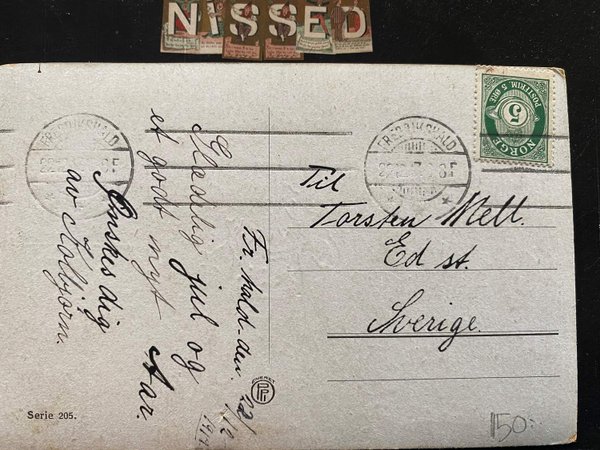 NISSED
POSTFRIM. 5 ØRE
5
NORGE
FREDRIKSHALD
FREDRIKSHALD
Til
Torsten Mell.
Ed st.
Sverige.
Fr.hald-den. 22/12
1917
Glædelig jul og
et godt nyt Aar.
Ønskes dig
av Kolbjørn.
Serie 205.
150:-